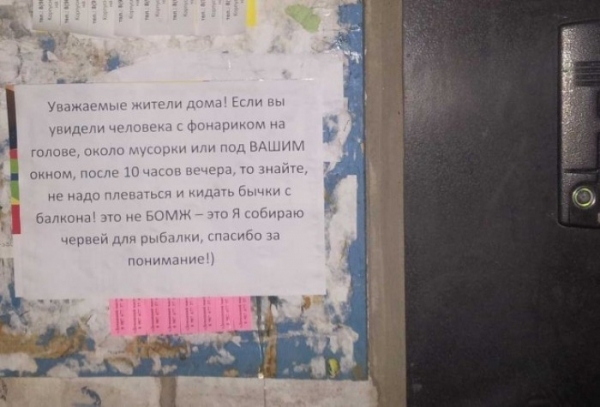 Уважаемые жители дома! Если вы
увидели человека с фонариком на
голове, около мусорки или под ВАШИМ
окном, после 10 часов вечера, то знайте,
не надо плеваться и кидать бычки с
балкона! это не БОМЖ – это Я собираю
червей для рыбалки, спасибо за
понимание!)